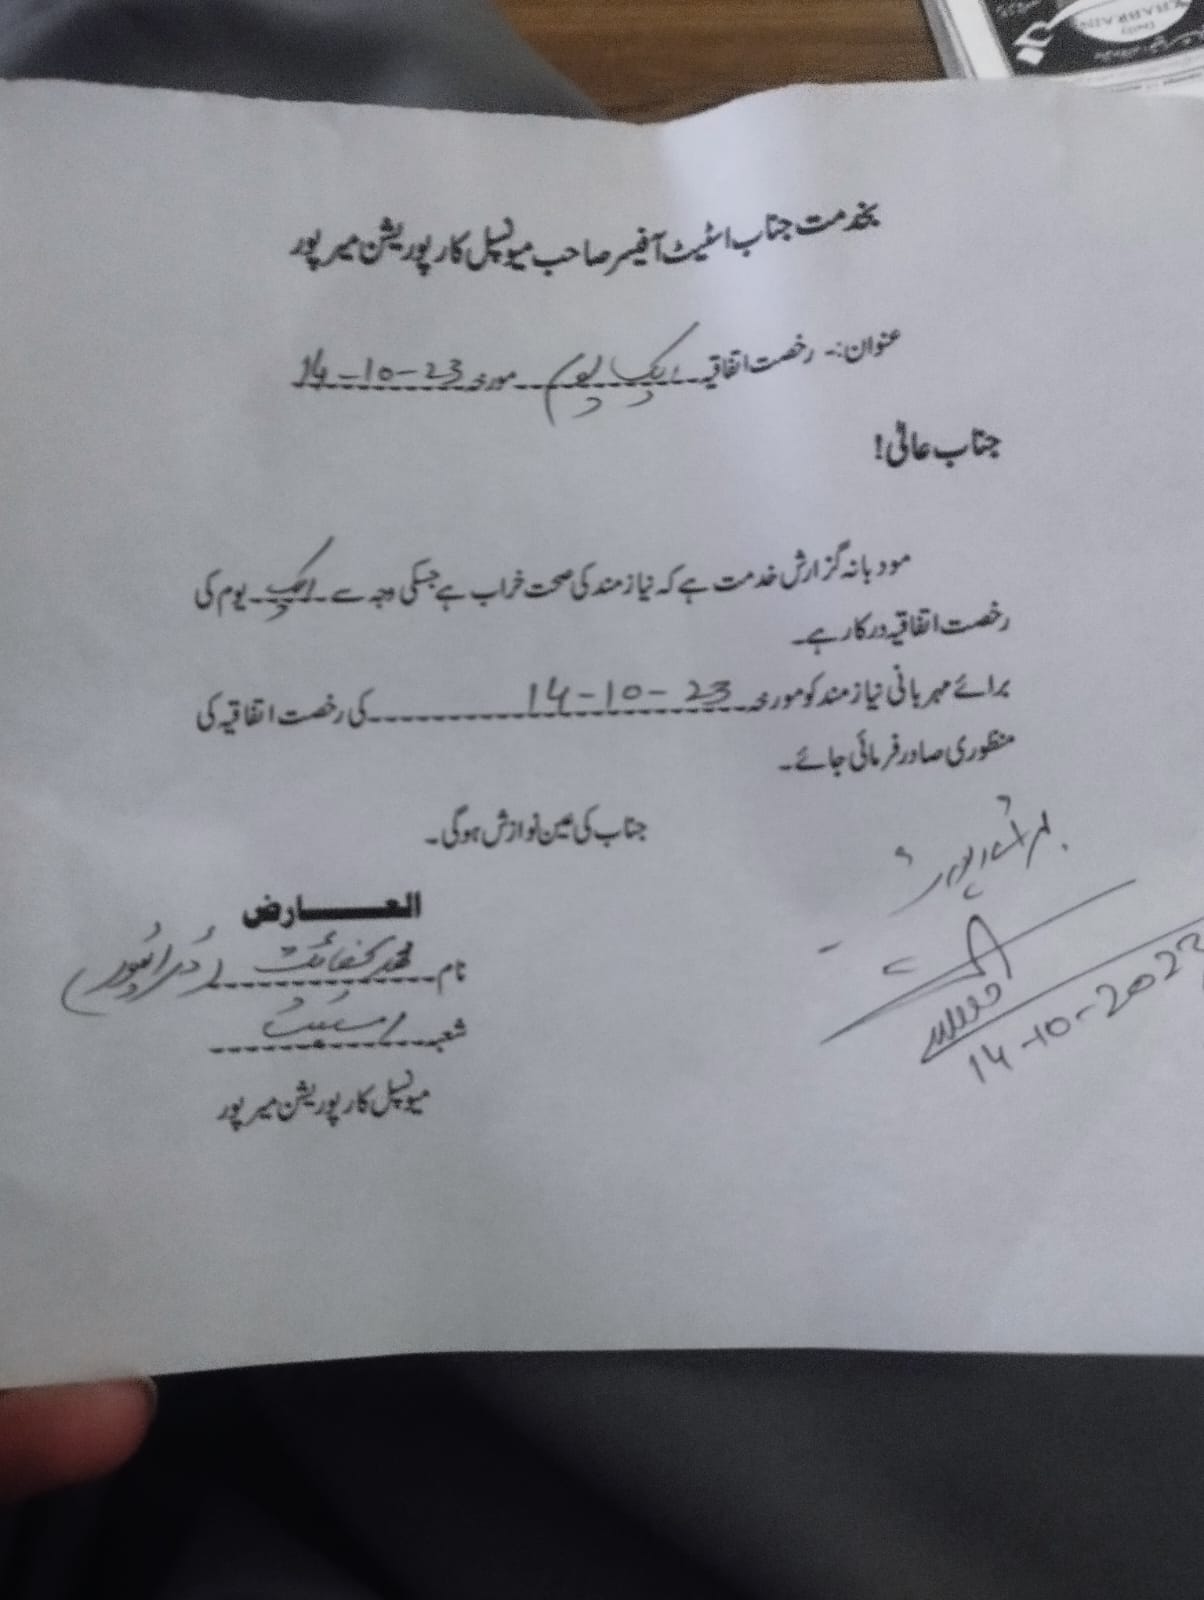 بخدمت جناب اسٹیٹ آفیسر صاحب میونسپل کارپوریشن میرپور
عنوان:- رخصت اتفاقیہ ایک یوم مورخہ 14-10-23
جناب عالی!
مودبانہ گزارش خدمت ہے کہ نیازمند کی صحت خراب ہے جسکی وجہ سے ایک یوم کی
رخصت اتفاقیہ درکار ہے۔
برائے مہربانی نیازمند کو مورخہ 14-10-23 کی رخصت اتفاقیہ کی
منظوری صادر فرمائی جائے۔
جناب کی عین نوازش ہوگی۔
العارض
نام محمد کفائت (ڈرائیور)
شعبہ اسٹیٹ
میونسپل کارپوریشن میرپور
14-10-2023